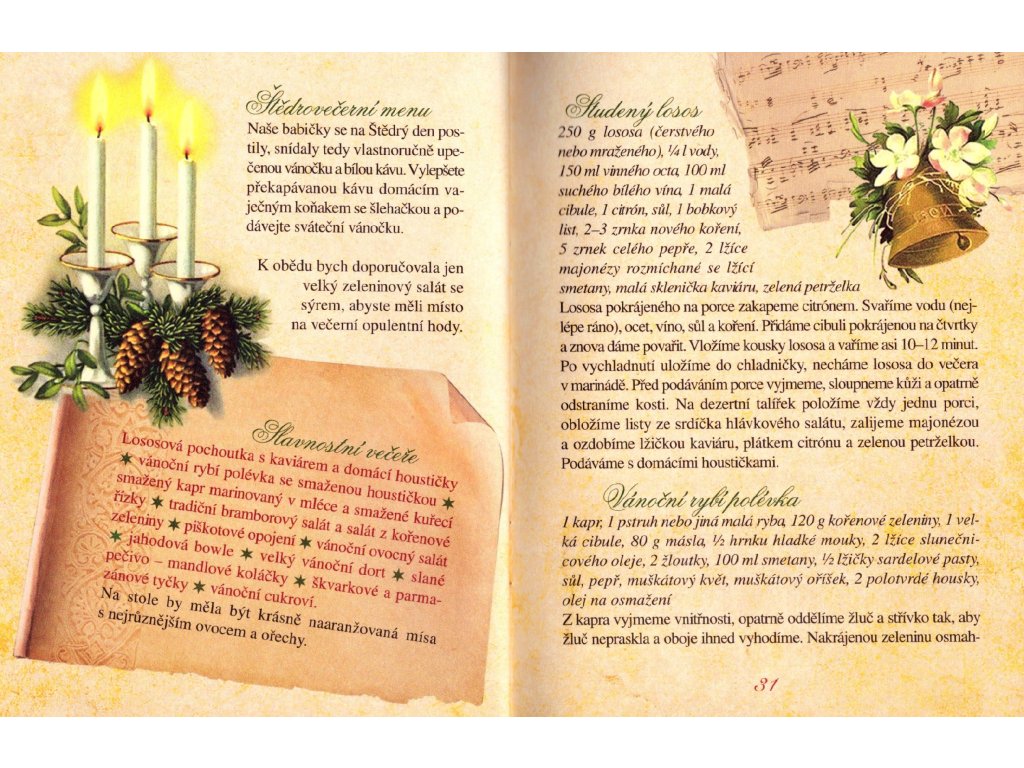 Štědrovečerní menu
Naše babičky se na Štědrý den pos-
tily, snídaly tedy vlastnoručně upe-
čenou vánočku a bílou kávu. Vylepšete
překapávanou kávu domácím va-
ječným koňakem se šlehačkou a po-
dávejte sváteční vánočku.
K obědu bych doporučovala jen
velký zeleninový salát se
sýrem, abyste měli místo
na večerní opulentní hody.
Slavnostní večeře
Lososová pochoutka s kaviárem a domácí houstičky
✶ vánoční rybí polévka se smaženou houstičkou ✶
smažený kapr marinovaný v mléce a smažené kuřecí
řízky ✶ tradiční bramborový salát a salát z kořenové
zeleniny ✶ piškotové opojení ✶ vánoční ovocný salát
✶ jahodová bowle ✶ velký vánoční dort ✶ slané
pečivo – mandlové koláčky ✶ škvarkové a parma-
zánové tyčky ✶ vánoční cukroví.
Na stole by měla být krásně naaranžovaná mísa
s nejrůznějším ovocem a ořechy.
Studený losos
250 g lososa (čerstvého
nebo mraženého), ¼ l vody,
150 ml vinného octa, 100 ml
suchého bílého vína, 1 malá
cibule, 1 citrón, sůl, 1 bobkový
list, 2–3 zrnka nového koření,
5 zrnek celého pepře, 2 lžíce
majonézy rozmíchané se lžící
smetany, malá sklenička kaviáru, zelená petrželka
Lososa pokrájeného na porce zakapeme citrónem. Svaříme vodu (nej-
lépe ráno), ocet, víno, sůl a koření. Přidáme cibuli pokrájenou na čtvrtky
a znova dáme povařit. Vložíme kousky lososa a vaříme asi 10–12 minut.
Po vychladnutí uložíme do chladničky, necháme lososa do večera
v marinádě. Před podáváním porce vyjmeme, sloupneme kůži a opatrně
odstraníme kosti. Na dezertní talířek položíme vždy jednu porci,
obložíme listy ze srdíčka hlávkového salátu, zalijeme majonézou
a ozdobíme lžičkou kaviáru, plátkem citrónu a zelenou petrželkou.
Podáváme s domácími houstičkami.
Vánoční rybí polévka
1 kapr, 1 pstruh nebo jiná malá ryba, 120 g kořenové zeleniny, 1 vel-
ká cibule, 80 g másla, ½ hrnku hladké mouky, 2 lžíce sluneční-
cového oleje, 2 žloutky, 100 ml smetany, ½ lžičky sardelové pasty,
sůl, pepř, muškátový květ, muškátový oříšek, 2 polotvrdé housky,
olej na osmažení
Z kapra vyjmeme vnitřnosti, opatrně oddělíme žluč a střívko tak, aby
žluč nepraskla a oboje ihned vyhodíme. Nakrájenou zeleninu osmah-
31